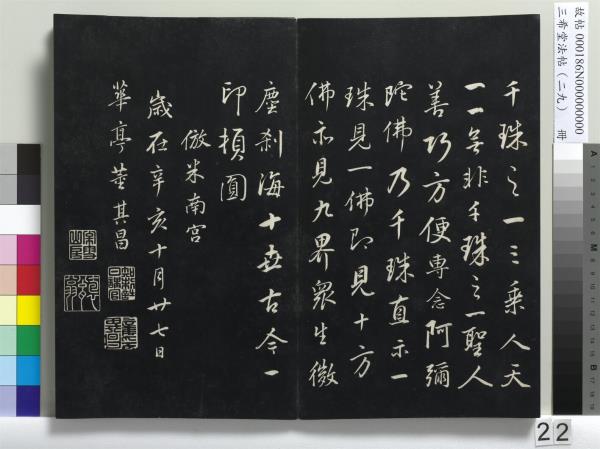 千珠之一三乘人天
一一無非千珠之一聖人
善巧方便專念阿彌
陀佛乃千珠直示一
珠見一佛即見十方
佛亦見九界眾生微
塵剎海十世古今一
印頓圓
倣米南宮
歲在辛亥十月廿七日
華亭董其昌
故帖 000186N000000000
三希堂法帖（二九） 冊
22